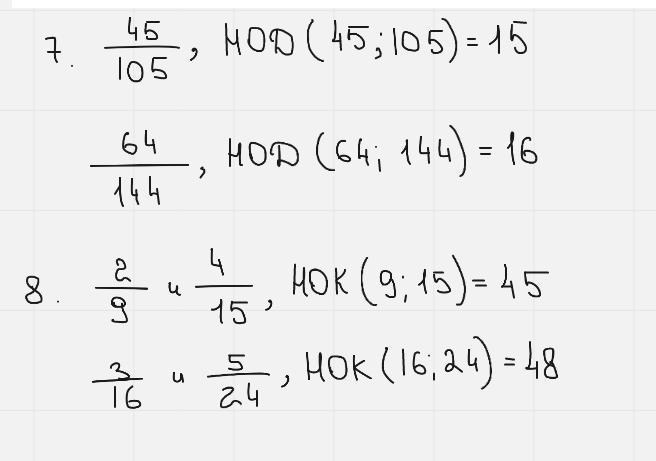 7. 45/105, НОД(45;105)=15
64/144, НОД(64; 144)=16
8. 2/9 и 4/15, НОК(9;15)=45
3/16 и 5/24, НОК(16;24)=48